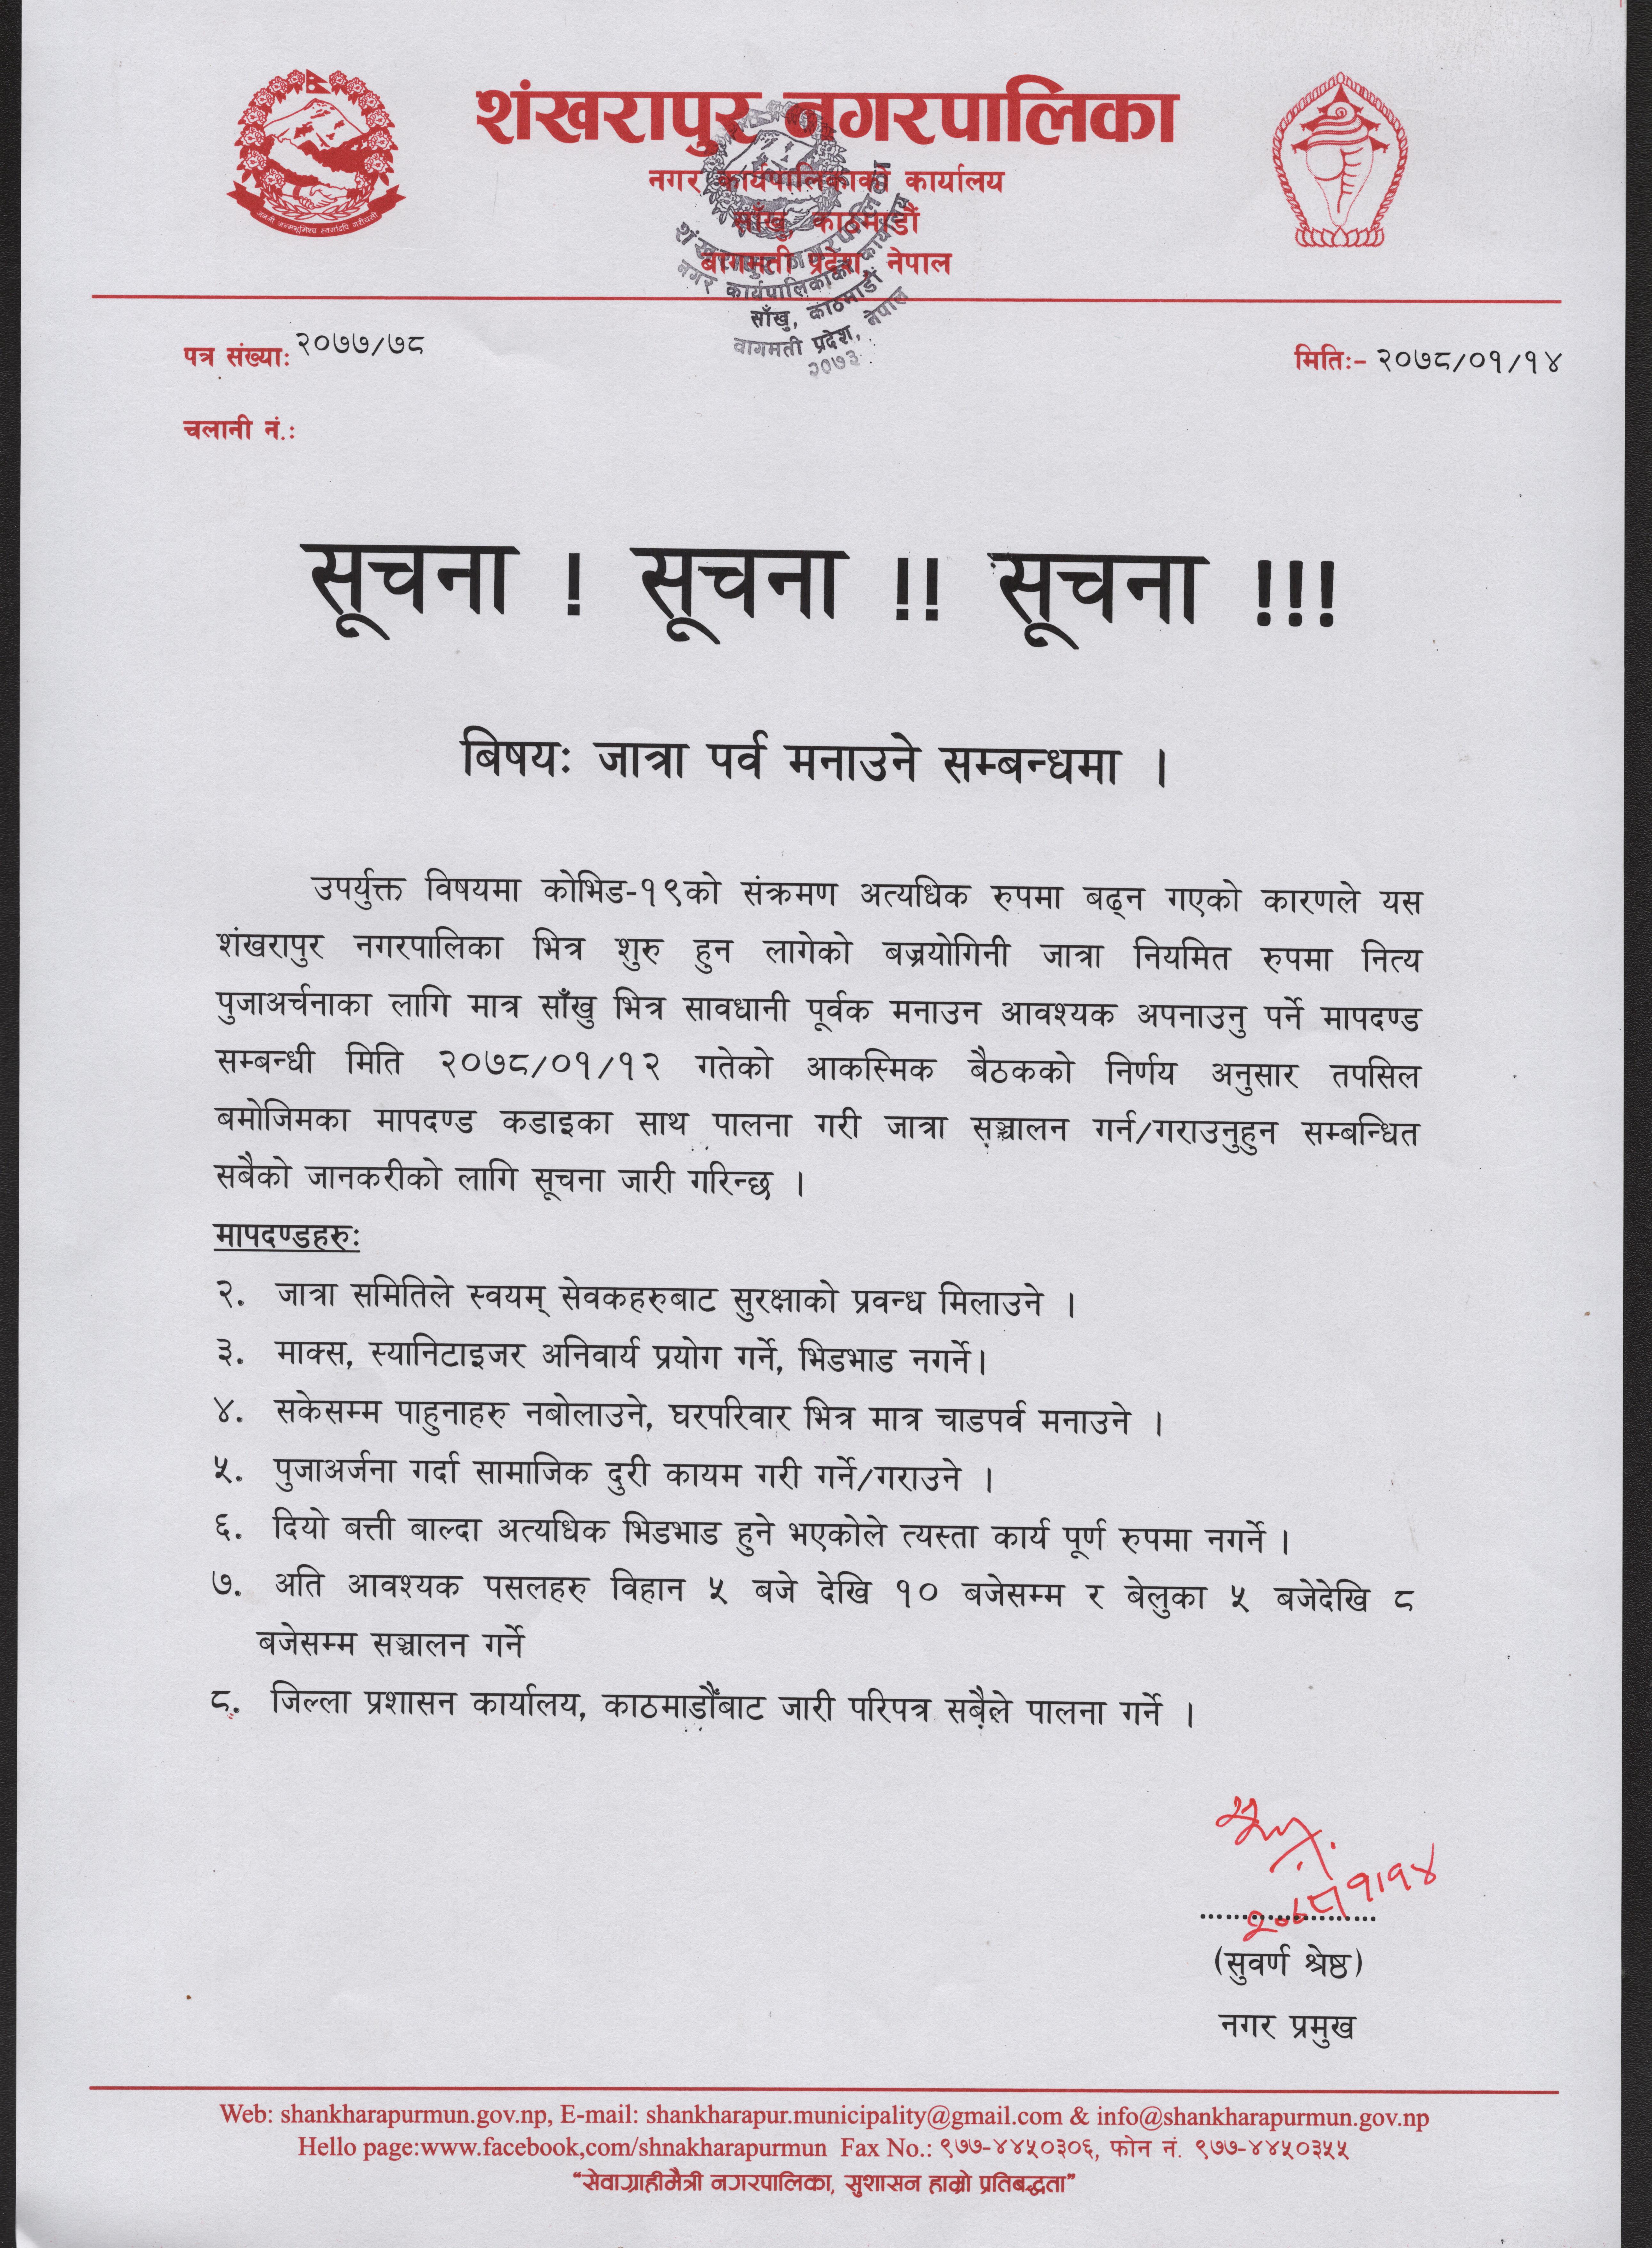 शंखरापुर नगरपालिका
नगर कार्यपालिकाको कार्यालय
साँखु, काठमाडौं
बागमती प्रदेश, नेपाल
जननी जन्मभूमिश्च स्वर्गादपि गरीयसी
शंखरापुर नगरपालिका
नगर कार्यपालिकाको कार्यालय
साँखु, काठमाडौं
वागमती प्रदेश, नेपाल
२०७३
पत्र संख्याः २०७७/७८
मितिः- २०७८/०१/१४
चलानी नं.ः
सूचना ! सूचना !! सूचना !!!
बिषयः जात्रा पर्व मनाउने सम्बन्धमा ।
उपर्युक्त विषयमा कोभिड-१९को संक्रमण अत्यधिक रुपमा बढ्न गएको कारणले यस
शंखरापुर नगरपालिका भित्र शुरु हुन लागेको बज्रयोगिनी जात्रा नियमित रुपमा नित्य
पुजाअर्चनाका लागि मात्र साँखु भित्र सावधानी पूर्वक मनाउन आवश्यक अपनाउनु पर्ने मापदण्ड
सम्बन्धी मिति २०७८/०१/१२ गतेको आकस्मिक बैठकको निर्णय अनुसार तपसिल
बमोजिमका मापदण्ड कडाइका साथ पालना गरी जात्रा सञ्चालन गर्न/गराउनुहुन सम्बन्धित
सबैको जानकरीको लागि सूचना जारी गरिन्छ ।
मापदण्डहरुः
२. जात्रा समितिले स्वयम् सेवकहरुबाट सुरक्षाको प्रवन्ध मिलाउने ।
३. माक्स, स्यानिटाइजर अनिवार्य प्रयोग गर्ने, भिडभाड नगर्ने।
४. सकेसम्म पाहुनाहरु नबोलाउने, घरपरिवार भित्र मात्र चाडपर्व मनाउने ।
५. पुजाअर्जना गर्दा सामाजिक दुरी कायम गरी गर्ने/गराउने ।
६. दियो बत्ती बाल्दा अत्यधिक भिडभाड हुने भएकोले त्यस्ता कार्य पूर्ण रुपमा नगर्ने ।
७. अति आवश्यक पसलहरु विहान ५ बजे देखि १० बजेसम्म र बेलुका ५ बजेदेखि ८
बजेसम्म सञ्चालन गर्ने
८. जिल्ला प्रशासन कार्यालय, काठमाडौंबाट जारी परिपत्र सबैले पालना गर्ने ।
२०७८।१।१४
....................
(सुवर्ण श्रेष्ठ)
नगर प्रमुख
Web: shankharapurmun.gov.np, E-mail: shankharapur.municipality@gmail.com & info@shankharapurmun.gov.np
Hello page:www.facebook,com/shnakharapurmun Fax No.: ९७७-४४५०३०६, फोन नं. ९७७-४४५०३५५
“सेवाग्राहीमैत्री नगरपालिका, सुशासन हाम्रो प्रतिबद्धता”